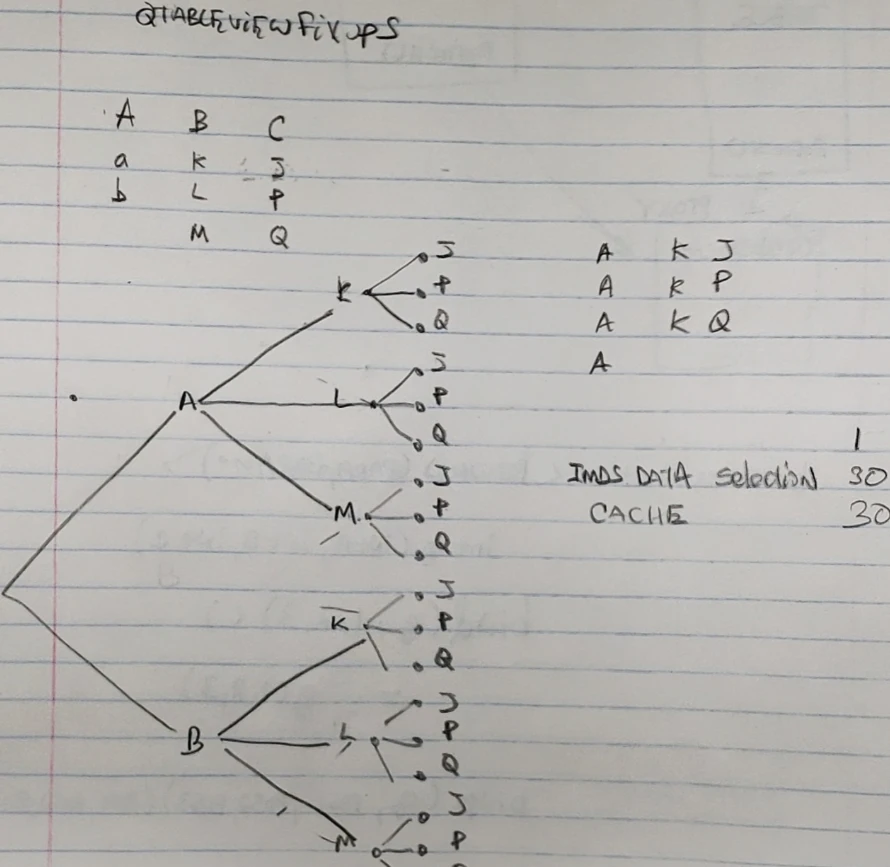 QTABLEViEW FixupS
A B C
a K J
b L P
M Q
J
K P
Q
J
A L P
Q
J
M P
Q
J
K P
Q
J
B L P
Q
J
M P
A K J
A K P
A K Q
A
1
IMDS DATA Selection 30
CACHE 30